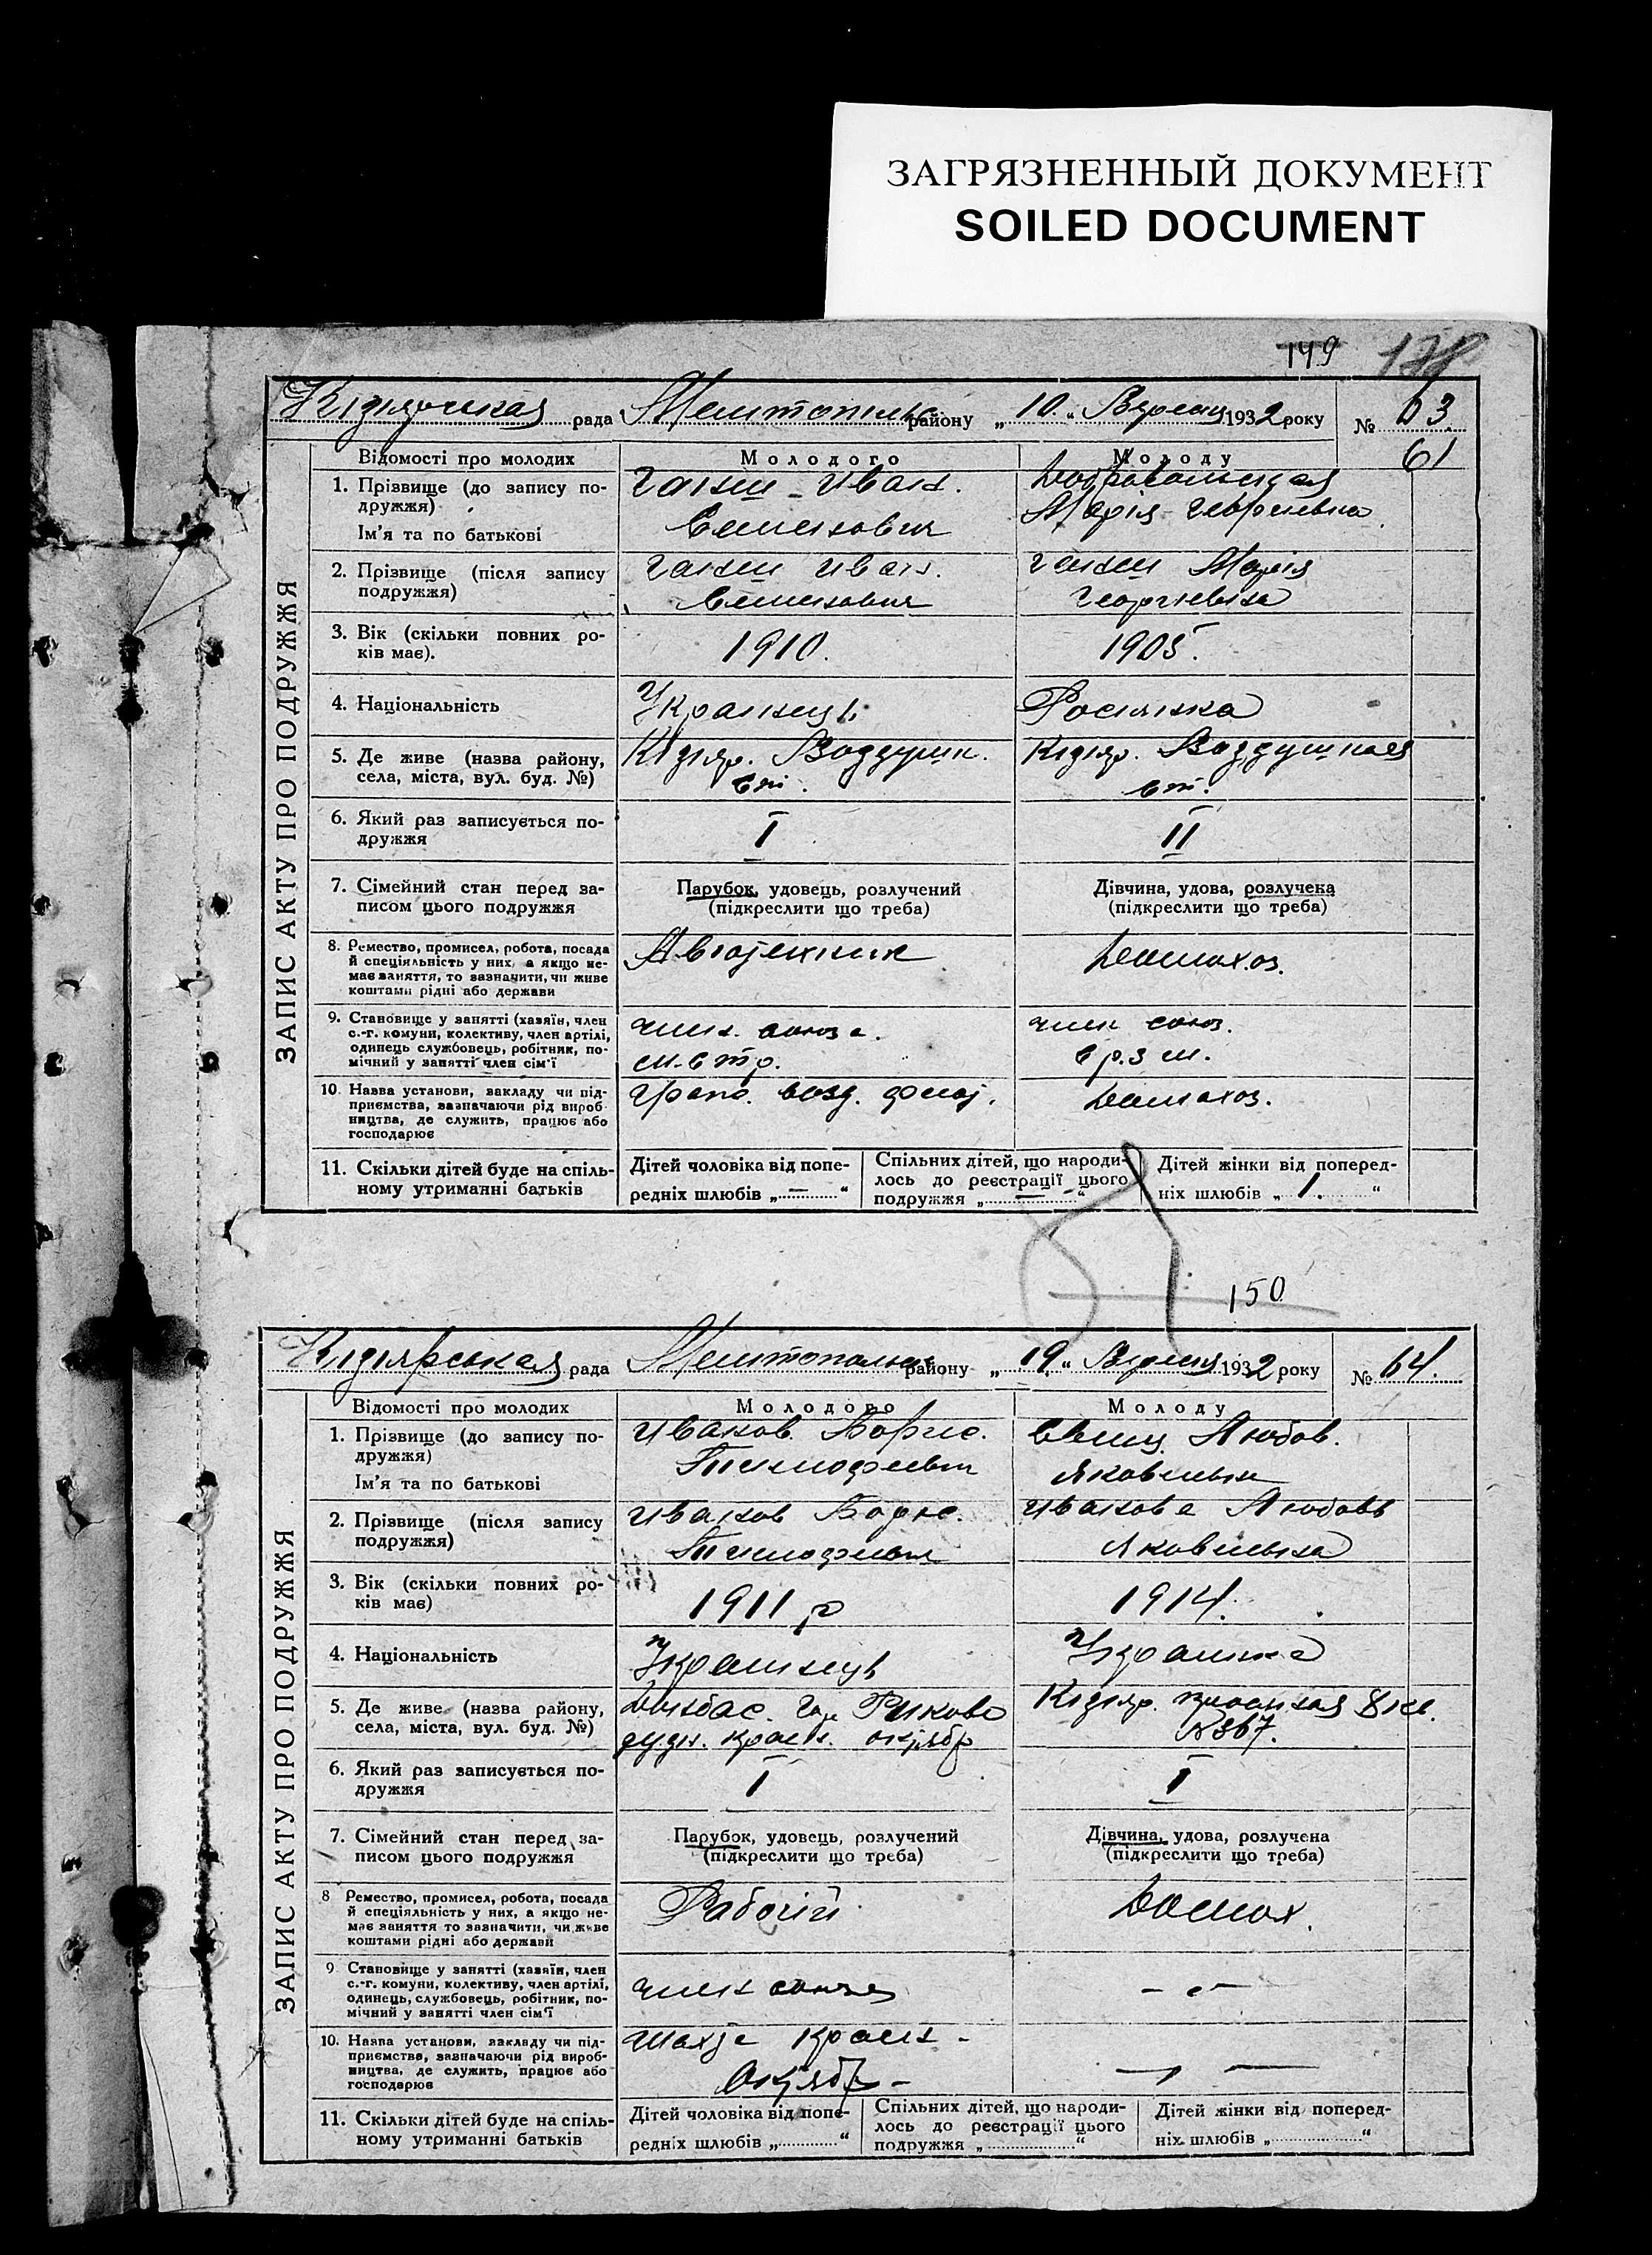 ЗАГРЯЗНЕННЫЙ ДОКУМЕНТ
SOILED DOCUMENT
149
Кізіярская рада района „10“ Вересня 1932 року № 63.
61
ЗАПИС АКТУ ПРО ПОДРУЖЖЯ
Відомості про молодих Молодого Молоду
1. Прізвище (до запису по-
дружжя)
Ім'я та по батькові
Иван.
Семенович
Марія Георгиевна
2. Прізвище (після запису
подружжя)
Иван.
Семенович
Марія
Георгиевна
3. Вік (скільки повних ро-
ків має).
1910.
1905.
4. Національність
Украинець
Росиянка
5. Де живе (назва району,
села, міста, вул. буд. №)
Кізіяр. Воздушн.
ст.
Кізіяр. Воздушная
ст.
6. Який раз записується по-
дружжя
I
II
7. Сімейний стан перед за-
писом цього подружжя
Парубок, удовець, розлучений
(підкреслити що треба)
Дівчина, удова, розлучена
(підкреслити що треба)
8. Ремество, промисел, робота, посада
й спеціяльність у них, а якщо не-
має заняття, то зазначити, чи живе
коштами рідні або держави
Домохоз.
9. Становище у занятті (хазяїн, член
с.-г. комуни, колективу, член артілі,
одинець службовець, робітник, по-
мічний у занятті член сім'ї
член союза.
член союз.
10. Назва установи, закладу чи під-
приємства, зазначаючи рід вироб-
ництва, де служить, працює або
господарює
Домохоз.
11. Скільки дітей буде на спіль-
ному утриманні батьків
Дітей чоловіка від попе-
редніх шлюбів „ — “
Спільних дітей, що народи-
лось до реєстрації цього
подружжя „ — “
Дітей жінки від поперед-
ніх шлюбів „ 1. “
150
Кізіярськая рада району „19“ Вересня 1932 року № 64.
ЗАПИС АКТУ ПРО ПОДРУЖЖЯ
Відомості про молодих Молодого Молоду
1. Прізвище (до запису по-
дружжя)
Ім'я та по батькові
Иванов Борис.
Тимофеевич
Любов.
Яковлевна
2. Прізвище (після запису
подружжя)
Иванов Борис.
Тимофеевич
Иванова Любовь
Яковлевна
3. Вік (скільки повних ро-
ків має)
1911 р
1914.
4. Національність
Украинець
Украинка
5. Де живе (назва району,
села, міста, вул. буд. №)
Донбас. гор Риково
рудн. красн. октябр
Кізіяр.
№367.
6. Який раз записується по-
дружжя
I
I
7. Сімейний стан перед за-
писом цього подружжя
Парубок, удовець, розлучений
(підкреслити що треба)
Дівчина, удова, розлучена
(підкреслити що треба)
8 Ремество, промисел, робота, посада
й спеціяльність у них, а якщо не-
має заняття то зазначити, чи живе
коштами рідні або держави
Рабочій
Домох.
9 Становище у занятті (хазяїн, член
с.-г. комуни, колективу, член артілі,
одинець, службовець, робітник, по-
мічний у занятті член сім'ї
член союза
10. Назва установи, закладу чи під-
приємства, зазначаючи рід вироб-
ництва, де служить, працює або
господарює
Шахта Красн -
Октябр -
11. Скільки дітей буде на спіль-
ному утриманні батьків
Дітей чоловіка від попе-
редніх шлюбів „ “
Спільних дітей, що народи-
лось до реєстрації цього
подружжя „ “
Дітей жінки від поперед-
ніх шлюбів „ “